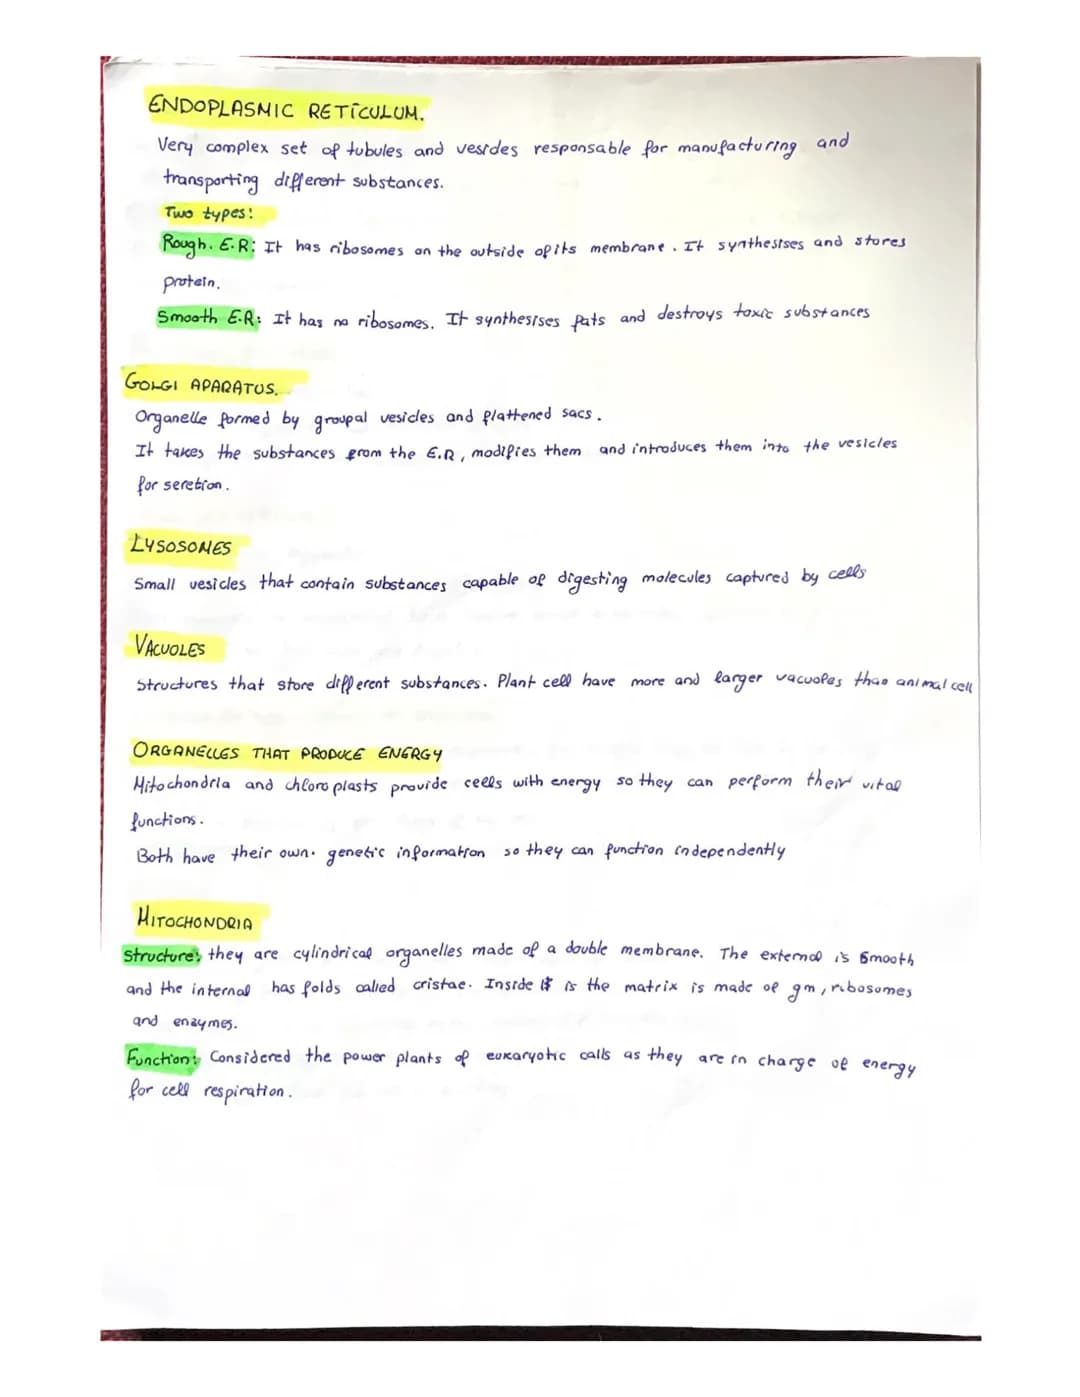 ENDOPLASMIC RETICULUM.
Very complex set of tubules and vesides responsable for manufacturing and
transporting different substances.
Two types:
Rough. E.R: It has ribosomes on the outside of its membrane. It synthesises and stores
protein.
Smooth E.R: It has no ribosomes. It synthesises fats and destroys toxic substances
GOLGI APARATUS.
Organelle formed by groupal vesicles and flattened sacs.
It takes the substances from the E.R, modifies them and introduces them into the vesicles
for seretion.
LYSOSOMES
Small vesicles that contain substances capable of digesting molecules captured by cells
VACUOLES
Structures that store different substances. Plant cell have more and larger vacuoles than animal cell
ORGANELLES THAT PRODUCE ENERGY
Mitochondria and chloroplasts provide cells with energy so they can perform their vital
functions.
Both have their own. genetic information so they can function independently
MITOCHONDRIA
Structure: they are cylindrical organelles made of a double membrane. The external is smooth
and the internal has folds called cristae. Inside is the matrix is made of gm, ribosomes
and enzymes.
Function: Considered the power plants of eukaryotic calls as they are in charge of energy
for cell respiration.